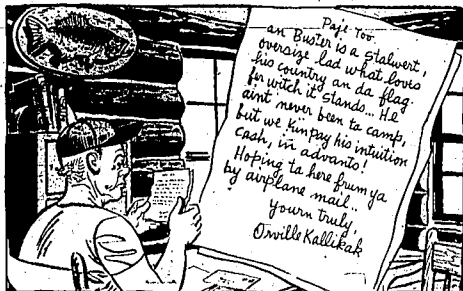 Paje Too.
an Buster is a stalwert,
oversize lad what loves
his country an da flag
fer witch it stands... He
aint never been to camp,
but we kin pay his intuition
cash, in advants!
Hoping ta here frum ya
by airplane mail..
yourn truly,
Orville Kallikak